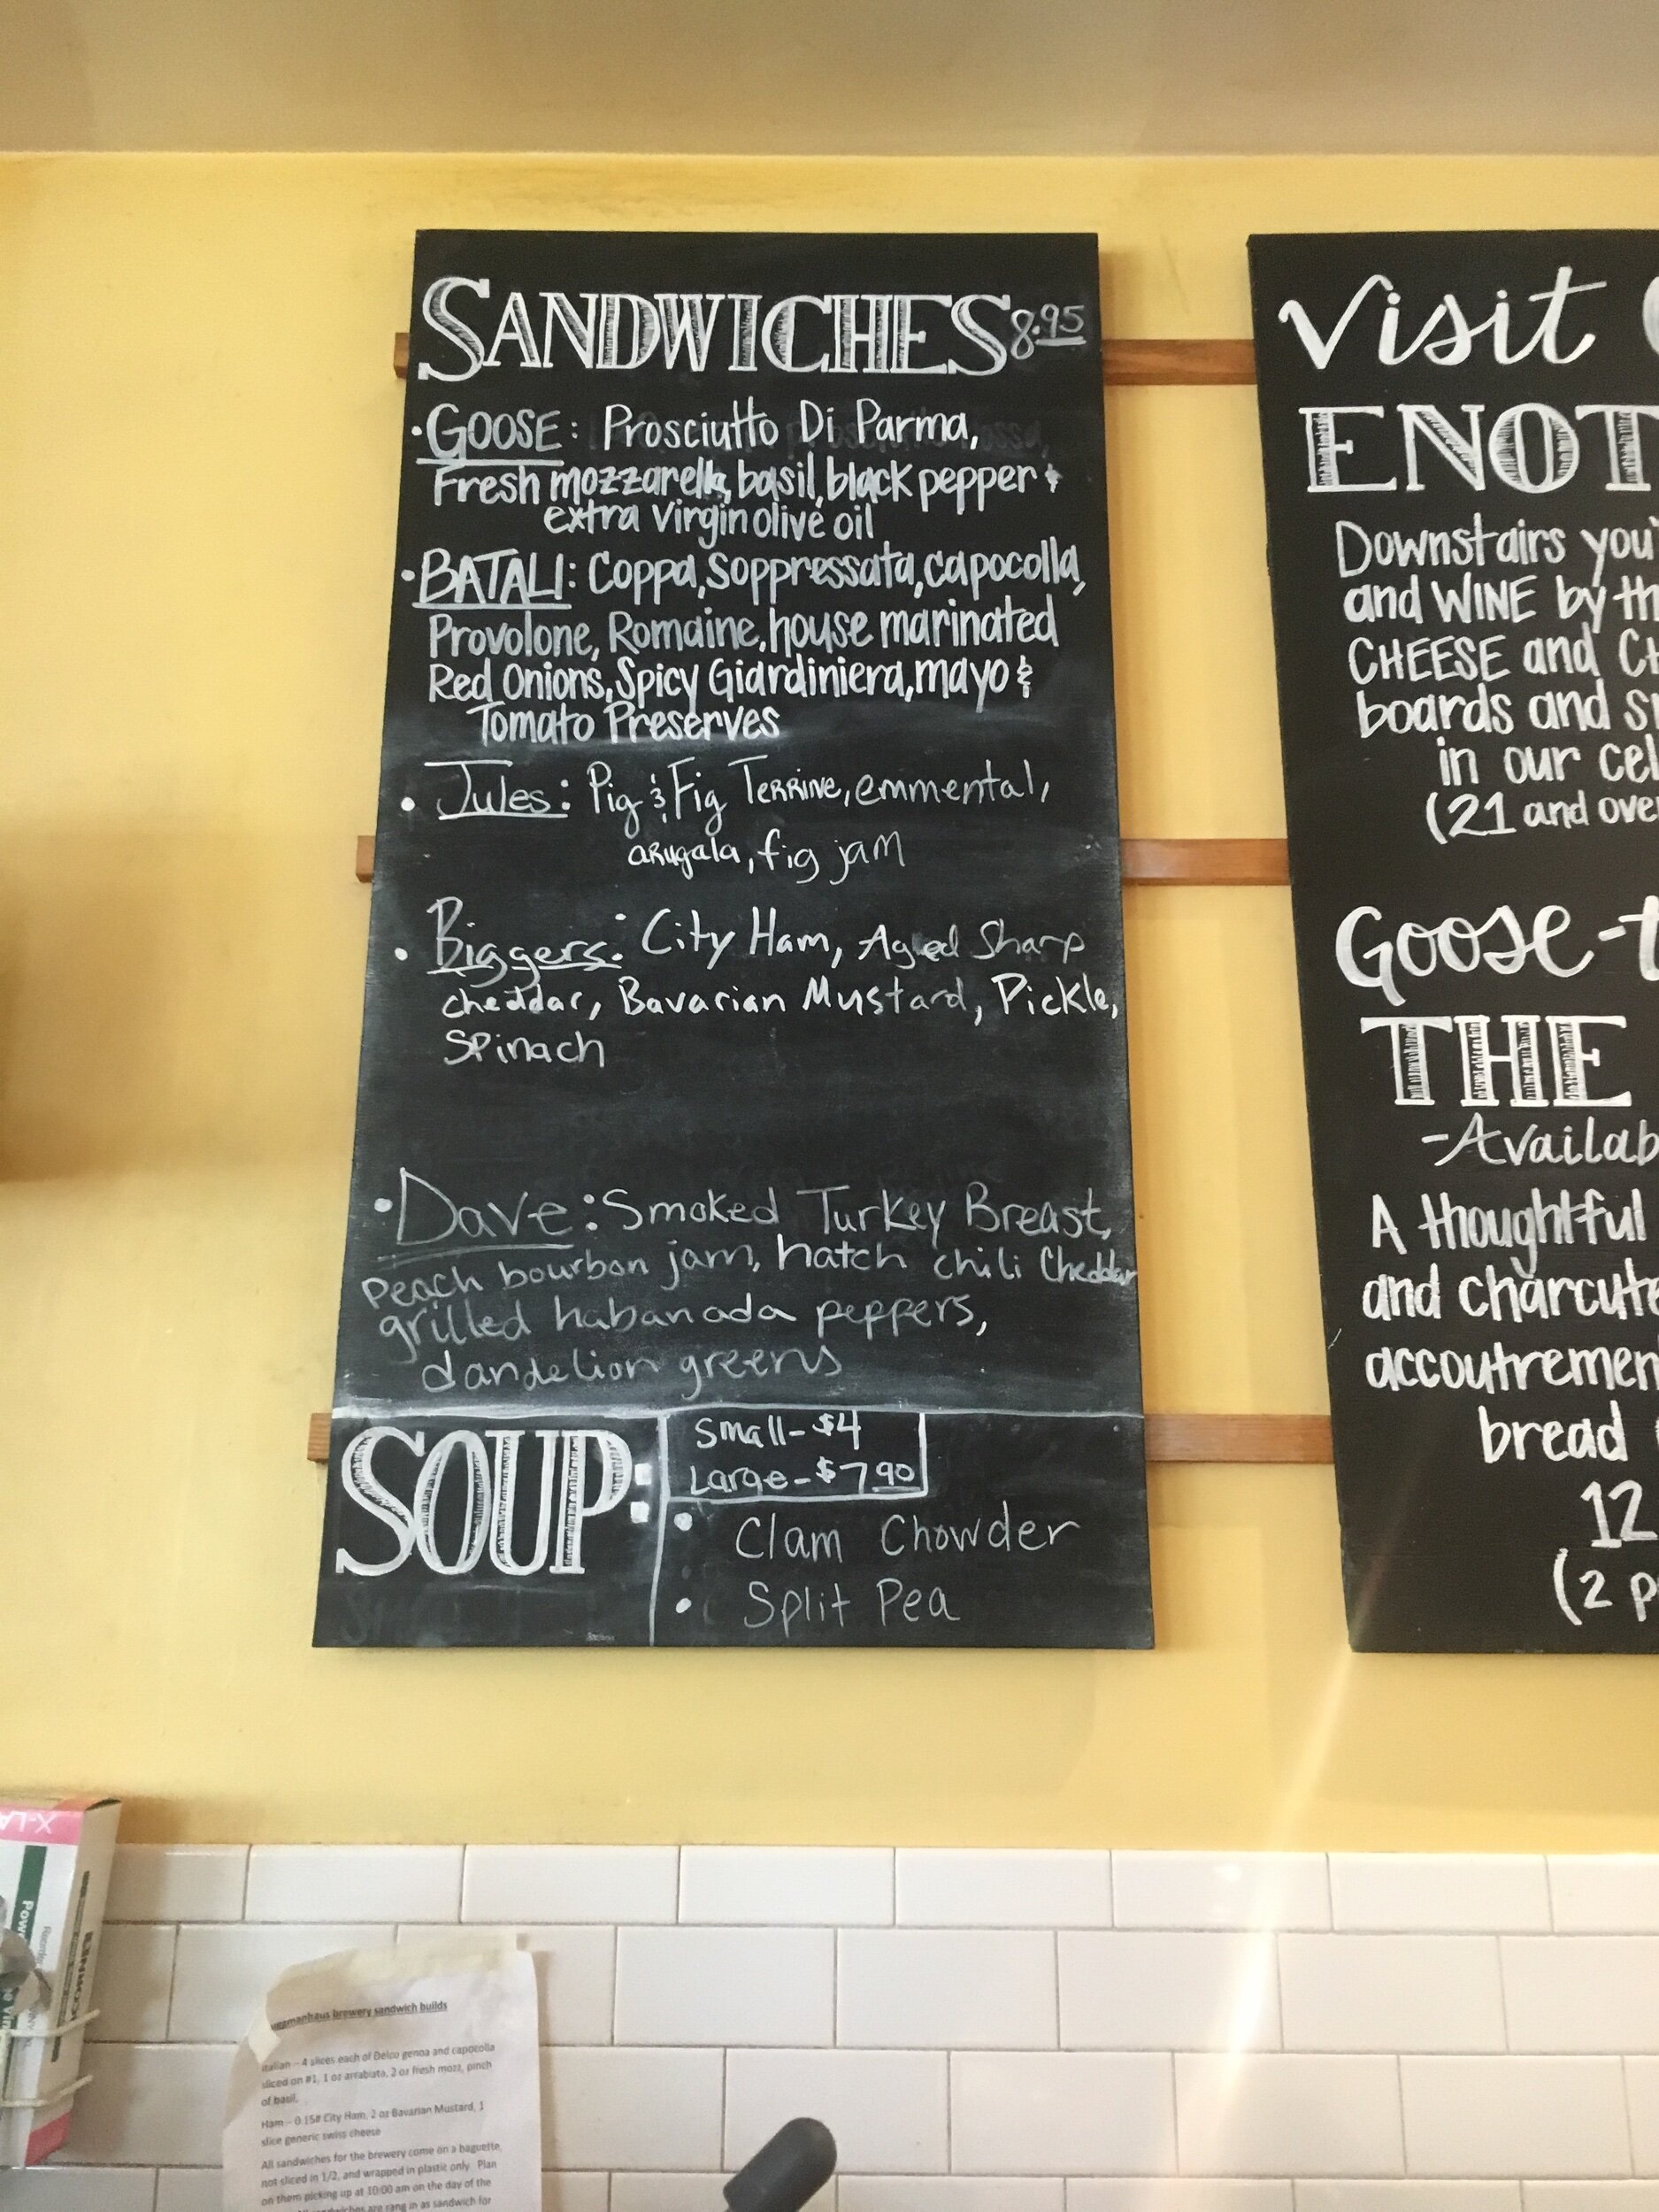 SANDWICHES 8.95
• GOOSE: Prosciutto Di Parma,
Fresh mozzarella, basil, black pepper &
extra virgin olive oil
• BATALI: Coppa, Soppressata, capocolla,
Provolone, Romaine, house marinated
Red Onions, Spicy Giardiniera, mayo &
Tomato Preserves
• Jules: Pig & Fig Terrine, emmental,
arugala, fig jam
• Biggers: City Ham, Aged Sharp
cheddar, Bavarian Mustard, Pickle,
Spinach
• Dave: Smoked Turkey Breast,
peach bourbon jam, hatch chili Cheddar
grilled habanada peppers,
dandelion greens
SOUP:
Small - $4
Large - $7.90
• Clam Chowder
• Split Pea
Visit
ENOT
Downstairs you'
and WINE by th
CHEESE and CH
boards and s
in our cel
(21 and over
Goose-t
THE
- Availab
A thoughtful
and charcute
accoutremen
bread
12
(2 p
X-LA
brewery sandwich builds
Italian – 4 slices each of Delco genoa and capocolla
sliced on #1, 1 oz arrabiata, 2 oz fresh mozz, pinch
of basil.
Ham – 0.15# City Ham, 2 oz Bavarian Mustard, 1
slice generic swiss cheese
All sandwiches for the brewery come on a baguette,
not sliced in 1/2, and wrapped in plastic only. Plan
on them picking up at 10:00 am on the day of the
are rang in as sandwich for